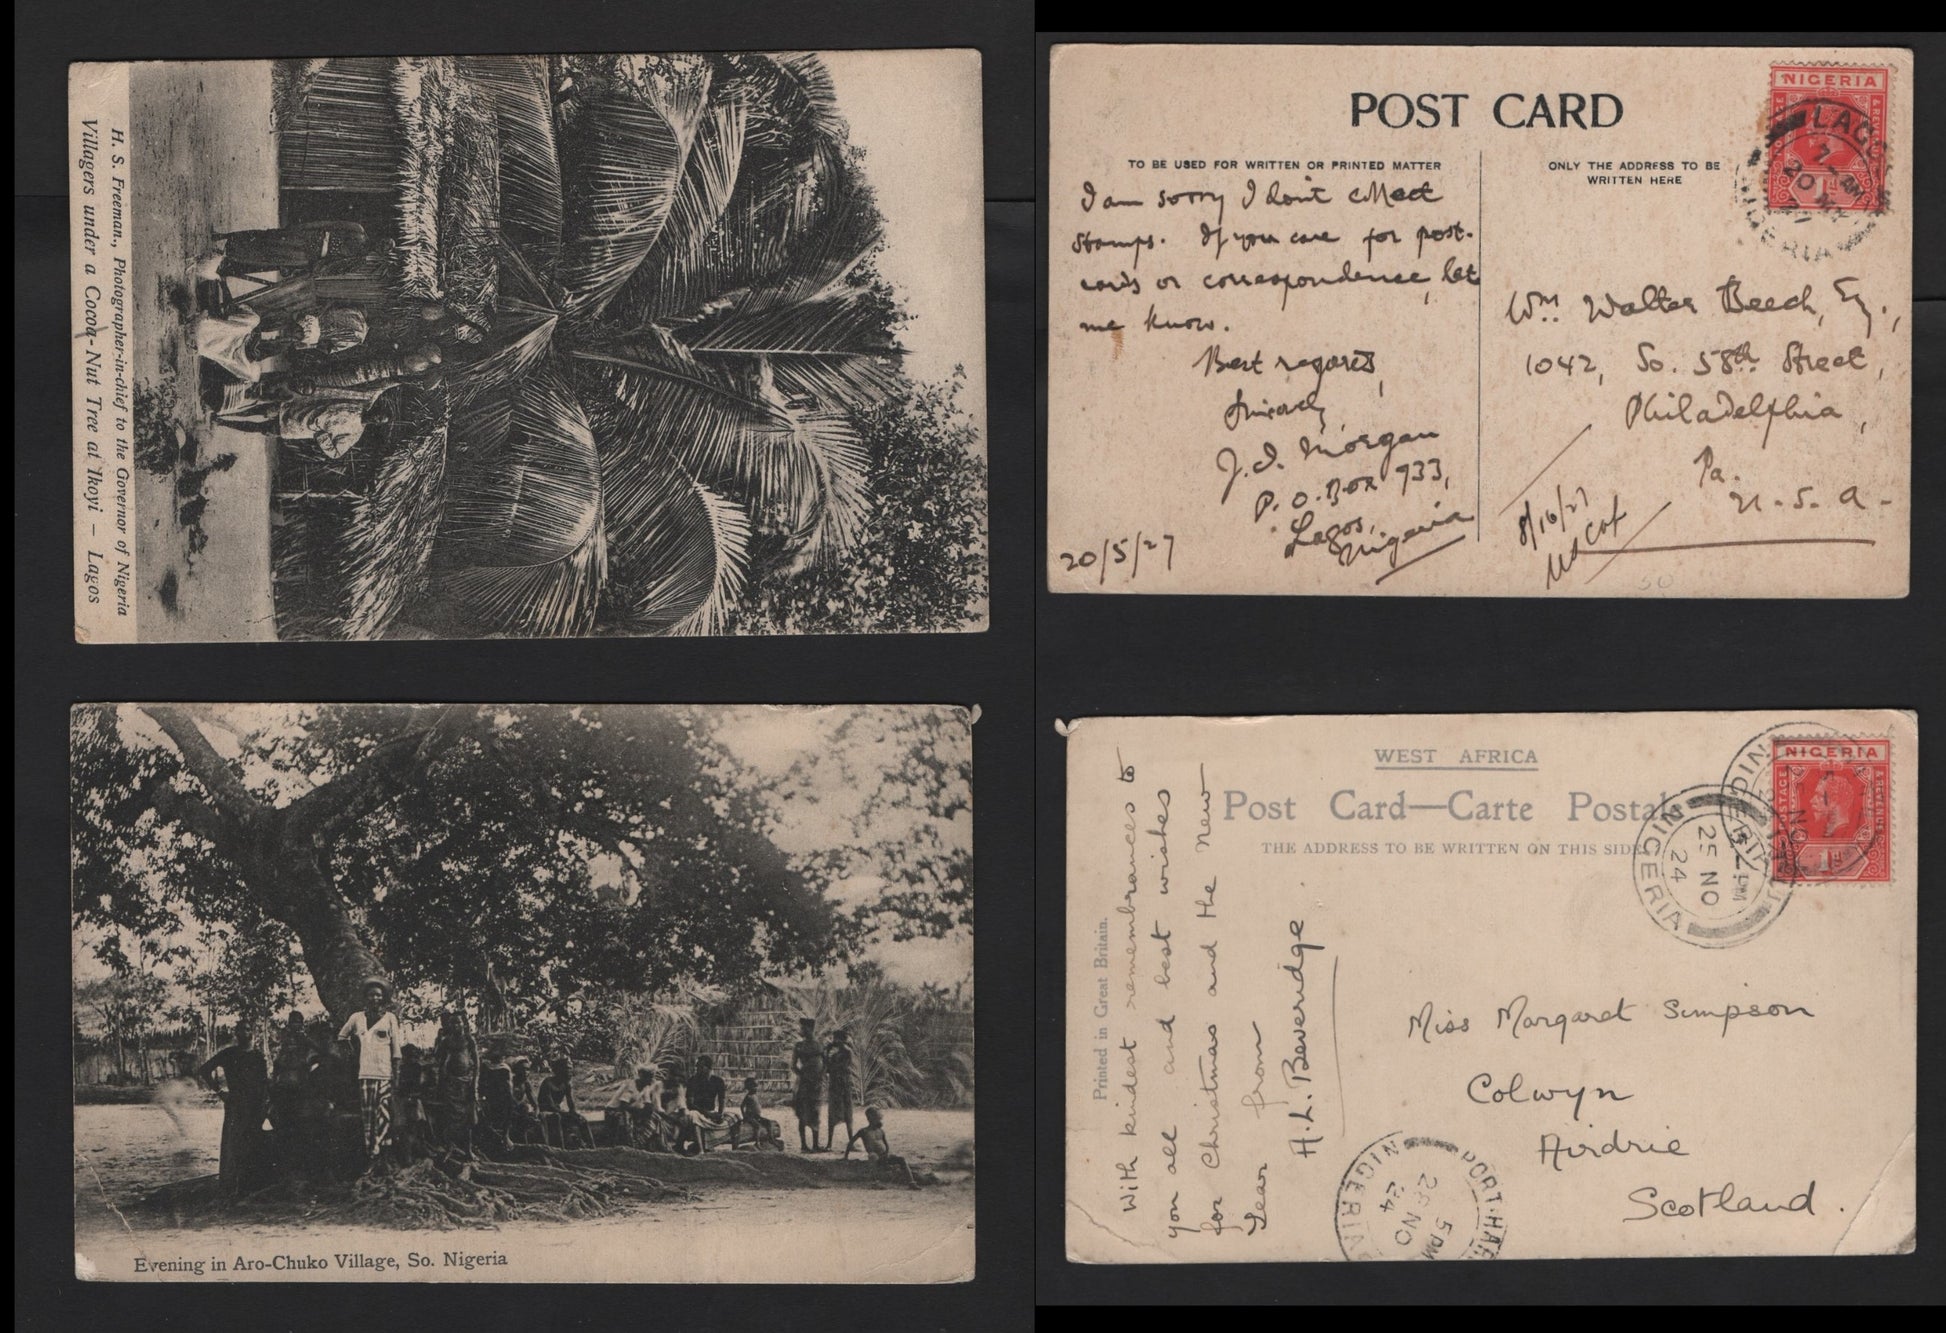 H. S. Freeman., Photographer-in-chief to the Governor of Nigeria
Villagers under a Cocoa-Nut Tree at Ikoyi — Lagos
POST CARD
TO BE USED FOR WRITTEN OR PRINTED MATTER
ONLY THE ADDRESS TO BE
WRITTEN HERE
NIGERIA
I am sorry I don't collect
stamps. If you care for post-
cards or correspondence, let
me know.
Best regards,
Sincerely
J. I. Morgan
P. O. Box 933,
Lagos,
Nigeria
20/5/27
Wm. Walter Beech, Esq.,
1042, So. 58th Street,
Philadelphia,
Pa.
U. S. A.
8/16/27
Evening in Aro-Chuko Village, So. Nigeria
WEST AFRICA
Post Card—Carte Postale
THE ADDRESS TO BE WRITTEN ON THIS SIDE
Printed in Great Britain.
With kindest remembrances to
you all and best wishes
for Christmas and the New
Year from
H. L. Beveridge.
Miss Margaret Simpson
Colwyn
Airdrie
Scotland.
NIGERIA
POSTAGE & REVENUE
1d
25 NO
24
NIGERIA
PORT-HAR
5 PM
28 NO
24
NIGERIA